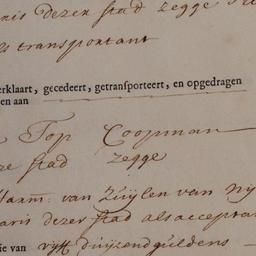 nis dezer stad zegge
ls transportant
erklaart, gecedeert, getransporteert, en opgedragen
en aan
Top Coopman
ze stad zegge
Harm: van Zuijlen van Nij
aris dezer stad als accepta
ie van vijff duijzend guldens